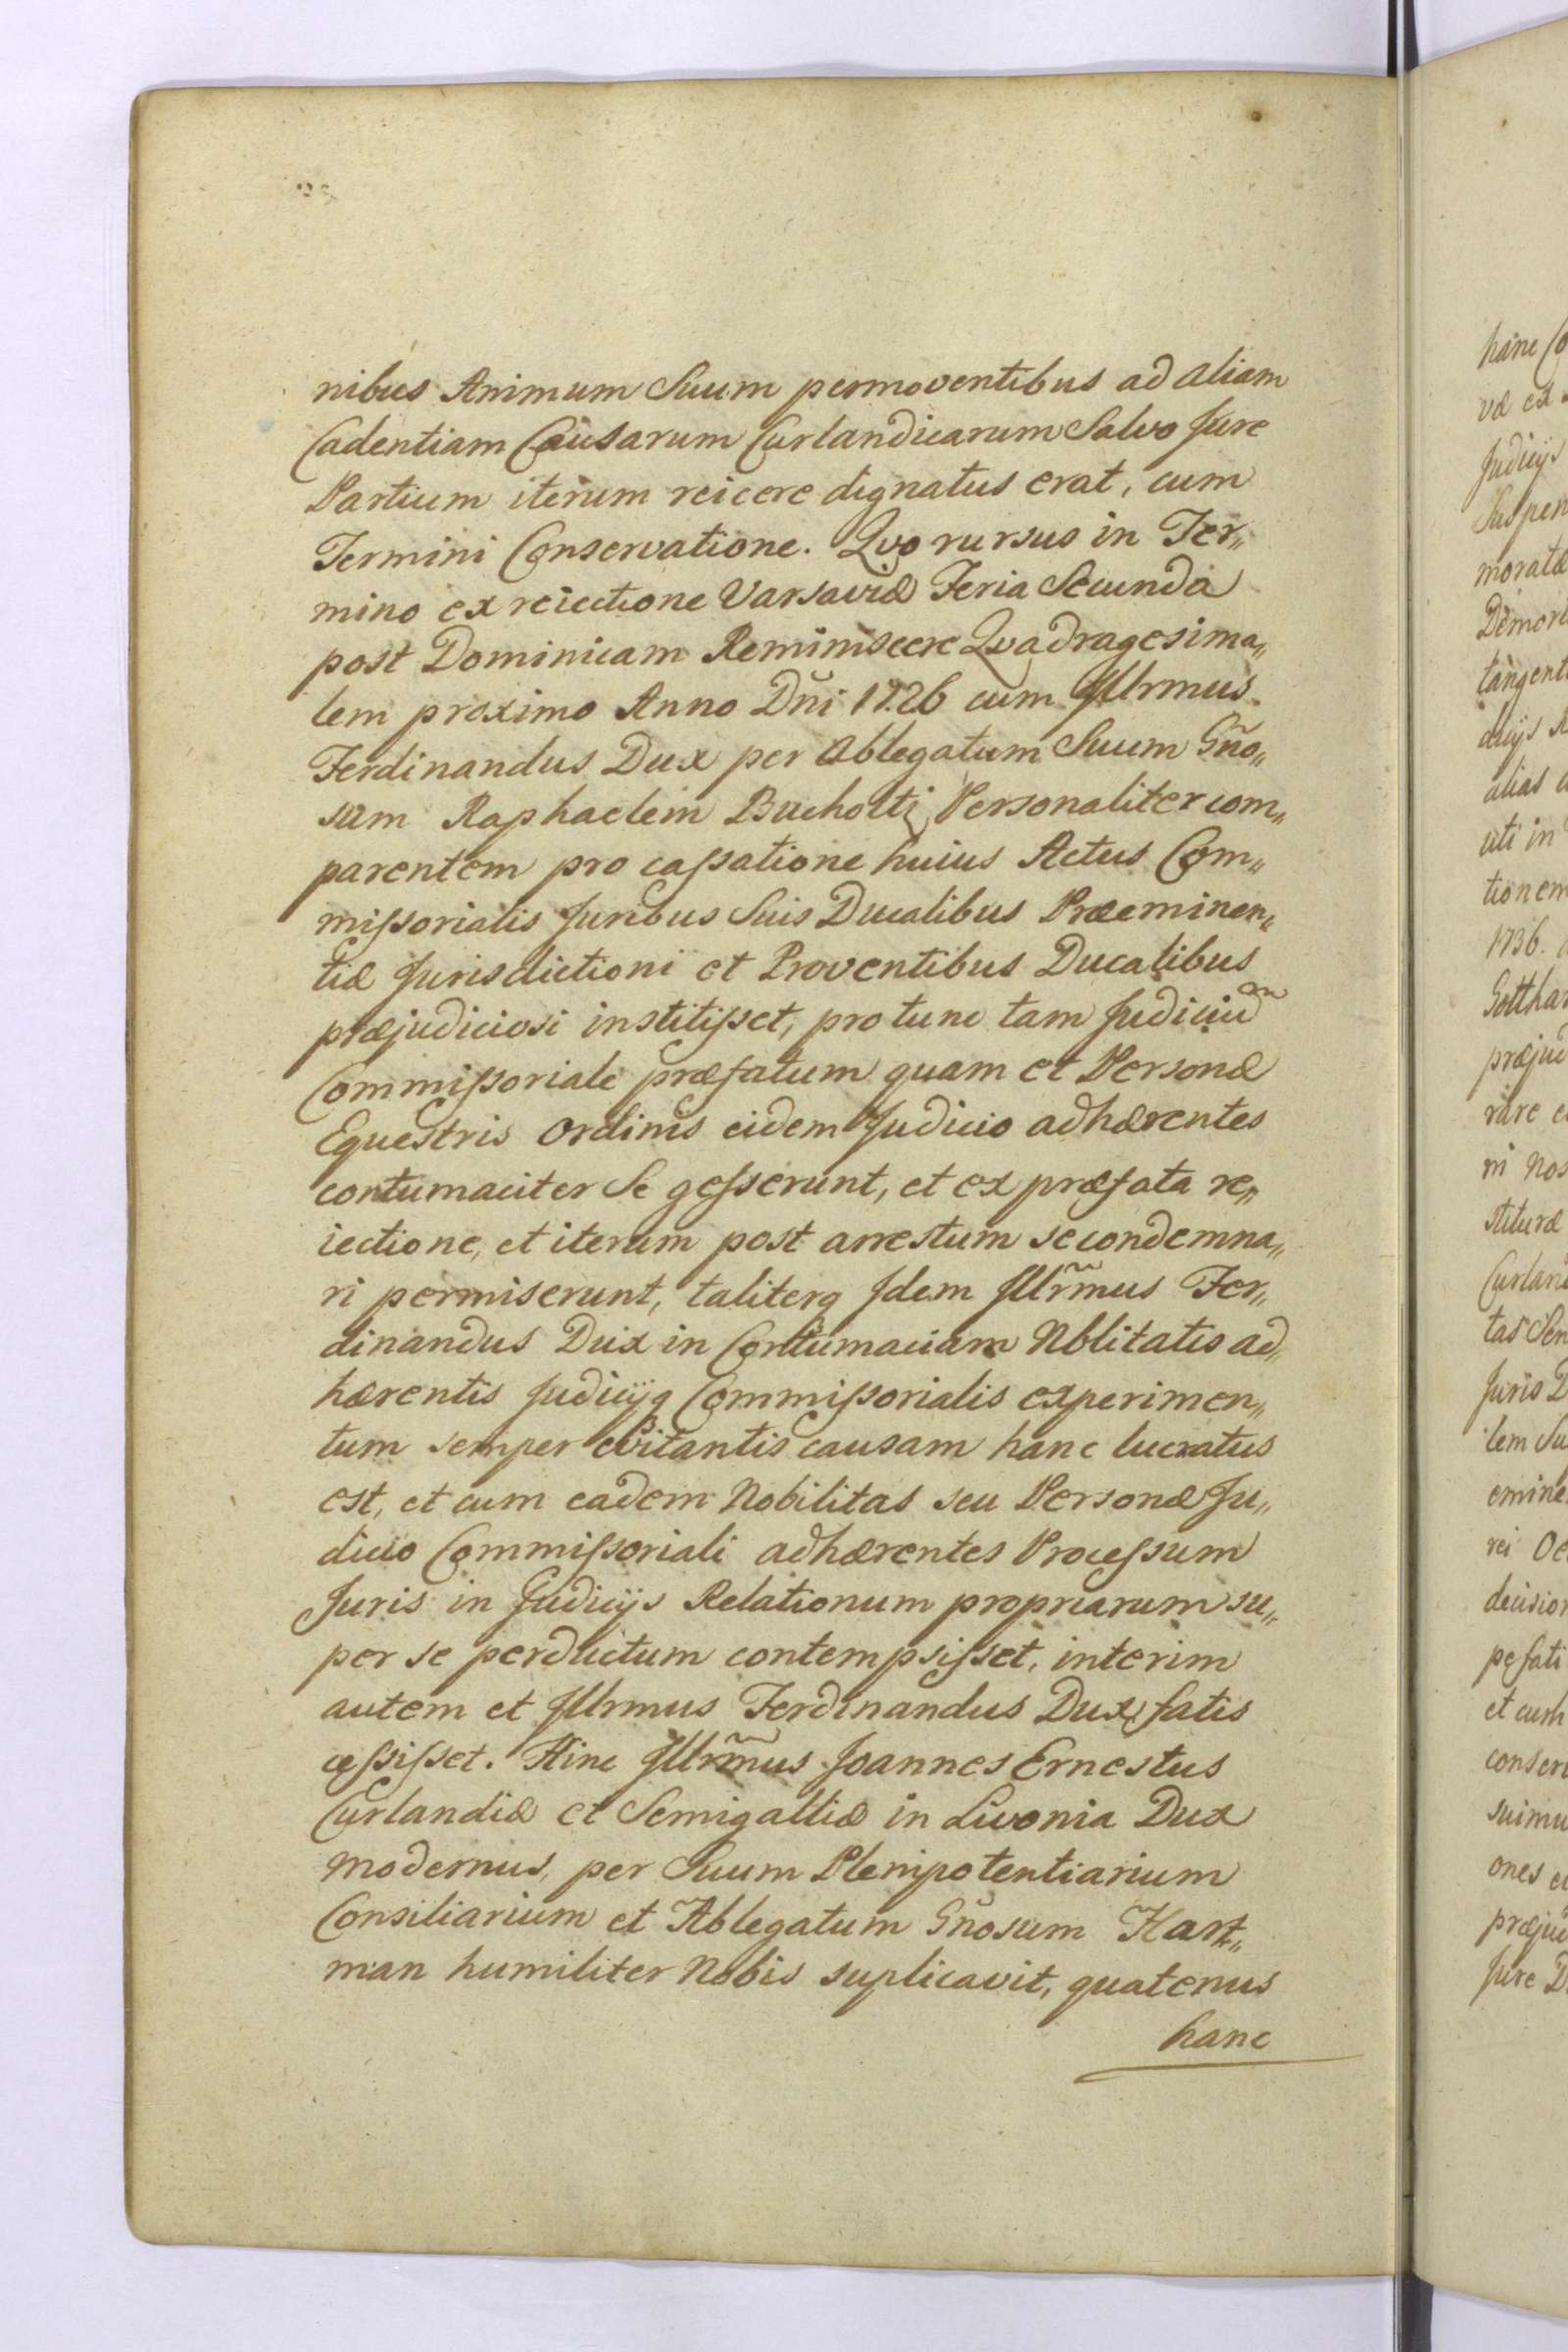 nibus Animum Suum permoventibus ad aliam
Cadentiam Causarum Curlandicarum Salvo Jure
Partium iterum reicere dignatus erat, cum
Termini Conservatione. Qvo rursus in Ter„
mino ex reiectione Varsaviæ Feria Secunda
post Dominicam Reminiscere Qvadragesima„
lem proximo Anno Dñi 1726 cum Illrmus
Ferdinandus Dux per Ablegatum Suum Gño„
sum Raphaelem Bucholtz Personaliter com„
parentem pro cassatione huius Actus Com„
missorialis Juribus Suis Ducalibus Præeminen„
tiæ Jurisdictioni et Proventibus Ducalibus
præjudiciosi institisset, pro tunc tam Judiciũ
Commissoriale præfatum quam et Personæ
Equestris Ordinis eidem Judicio adhærentes
contumaciter Se gesserunt, et ex præfata re„
iectione, et iterum post arrestum se condemna„
ri permiserunt, taliterq Idem Illrm̃us Fer„
dinandus Dux in Contumaciam Nblitatis ad„
hærentis Judicijq Commissorialis experimen„
tum semper evitantis causam hanc lucratus
est, et cum eadem Nobilitas seu Personæ Ju„
dicio Commissoriali adhærentes Processum
Juris in Judicijs Relationum propriarum su„
per se perductum contempsisset, interim
autem et Illrmus Ferdinandus Dux fatis
cessisset. Hinc Illrm̃us Joannes Ernestus
Curlandiæ et Semigalliæ in Livonia Dux
modernus, per Suum Plenipotentiarium
Consiliarium et Ablegatum Gñosum Hart„
man humiliter Nobis suplicavit, quatenus
hanc
hanc Co
væ ex
Judicijs
Suspen
moratæ
Demor
tangent
dicijs
alias
uti in
tionem
1736.
Gotthar
præjud
rare
ni Nos
stituræ
Curland
tas
Juris D
lem Su
emine
rei
decision
pefati
et cum
conser
suimu
ones
præjud
Jure D